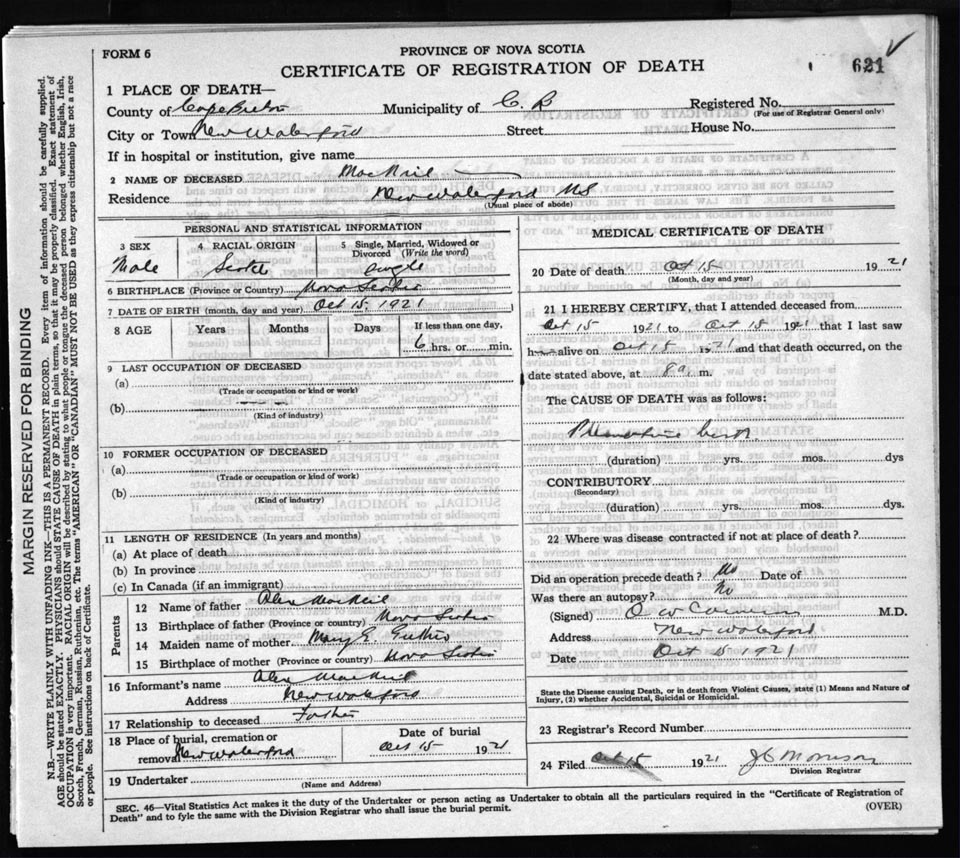 FORM 6
PROVINCE OF NOVA SCOTIA
CERTIFICATE OF REGISTRATION OF DEATH
621
1 PLACE OF DEATH—
County of Cape Breton Municipality of C. B Registered No.
(For use of Registrar General only)
City or Town New Waterford Street House No.
If in hospital or institution, give name
2 NAME OF DECEASED MacNeil
Residence New Waterford NS
(Usual place of abode)
PERSONAL AND STATISTICAL INFORMATION
3 SEX
Male
4 RACIAL ORIGIN
Scotch
5 Single, Married, Widowed or Divorced (Write the word)
Single
6 BIRTHPLACE (Province or Country) Nova Scotia
7 DATE OF BIRTH (month, day and year) Oct 15, 1921
8 AGE Years Months Days If less than one day,
6 hrs. or min.
9 LAST OCCUPATION OF DECEASED
(a)
(Trade or occupation or kind or work)
(b)
(Kind of industry)
10 FORMER OCCUPATION OF DECEASED
(a)
(Trade or occupation or kind of work)
(b)
(Kind of industry)
11 LENGTH OF RESIDENCE (In years and months)
(a) At place of death
(b) In province
(c) In Canada (if an immigrant)
Parents
12 Name of father Alex MacNeil
13 Birthplace of father (Province or country) Nova Scotia
14 Maiden name of mother Mary E.
15 Birthplace of mother (Province or country) Nova Scotia
16 Informant's name Alex MacNeil
Address New Waterford
17 Relationship to deceased Father
18 Place of burial, cremation or
removal New Waterford
Date of burial
Oct 15 1921
19 Undertaker
(Name and Address)
MEDICAL CERTIFICATE OF DEATH
20 Date of death Oct 15 1921
(Month, day and year)
21 I HEREBY CERTIFY, that I attended deceased from
Oct 15 1921 to Oct 15 1921 that I last saw
h alive on Oct 15 1921 and that death occurred, on
date stated above, at 8 a. m.
The CAUSE OF DEATH was as follows:
Premature birth
(duration) yrs. mos. dys
CONTRIBUTORY
(Secondary)
(duration) yrs. mos. dys.
22 Where was disease contracted if not at place of death?
Did an operation precede death? No Date of
Was there an autopsy? No
(Signed) M.D.
Address New Waterford
Date Oct 15 1921
State the Disease causing Death, or in death from Violent Causes, state (1) Means and Nature of
Injury, (2) whether Accidental, Suicidal or Homicidal.
23 Registrar's Record Number
24 Filed Oct 15 1921 J C Morrison
Division Registrar
SEC. 46—Vital Statistics Act makes it the duty of the Undertaker or person acting as Undertaker to obtain all the particulars required in the "Certificate of Registration of
Death" and to fyle the same with the Division Registrar who shall issue the burial permit.
(OVER)
MARGIN RESERVED FOR BINDING
N.B.—WRITE PLAINLY WITH UNFADING INK—THIS IS A PERMANENT RECORD. Every item of information should be carefully supplied.
AGE should be stated EXACTLY. PHYSICIANS should STATE CAUSE OF DEATH in plain terms, so that it may be properly classified. Exact statement of
OCCUPATION is very important. RACIAL ORIGIN will be described by stating to what people or tongue the deceased person belonged whether English, Irish,
Scotch, French, German, Russian, Ruthenian, etc. The terms "AMERICAN" OR "CANADIAN" MUST NOT BE USED as they express citizenship but not a race
or people. See instructions on back of Certificate.